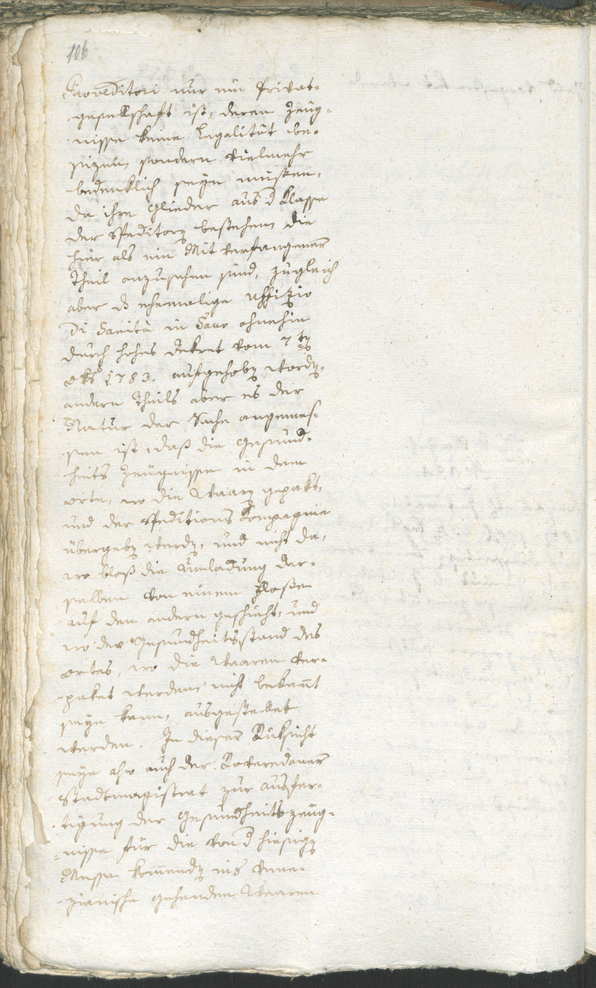 106
Proveditori nur ein Privat-
gesellschaft ist, deren Zeug-
nisse keine Legalität be-
sizen, sondern vielmehr
bedenklich seyn müssen,
da ihre Glieder aus d Klasse
der Speditorn bestehen, die
hier als ein Mitverfangener
Theil anzusehen sind, zugleich
aber d ehemalige Uffizio
di Sanità in Sacco ohnehin
durch hohes Dekret vom 7ten
8br 1783. aufgehobn wordn,
andern Theils aber es der
Natur der Sache angemes-
sen ist, daß die Gesund-
heits Zeugnisse in dem
Orte, wo die Waarn gepakt,
und der Speditions Compagnia
übergebn werdn, und nicht da,
wo bloß die Umladung der-
selben von einem Floße
auf den andern geschieht, und
wo der Gesundheitsstand des
Ortes, wo die Waaren ver-
paket werden, nicht bekannt
seyn kann, ausgestellet
werden. In dieser Rüksicht
seye also auch der Roveredaner
Stadtmagistrat zur Ausfer-
tigung der Gesundheitszeug-
nisse für die von d hiesign
Messe kommendn ins Vene-
zianische gehenden Waaren